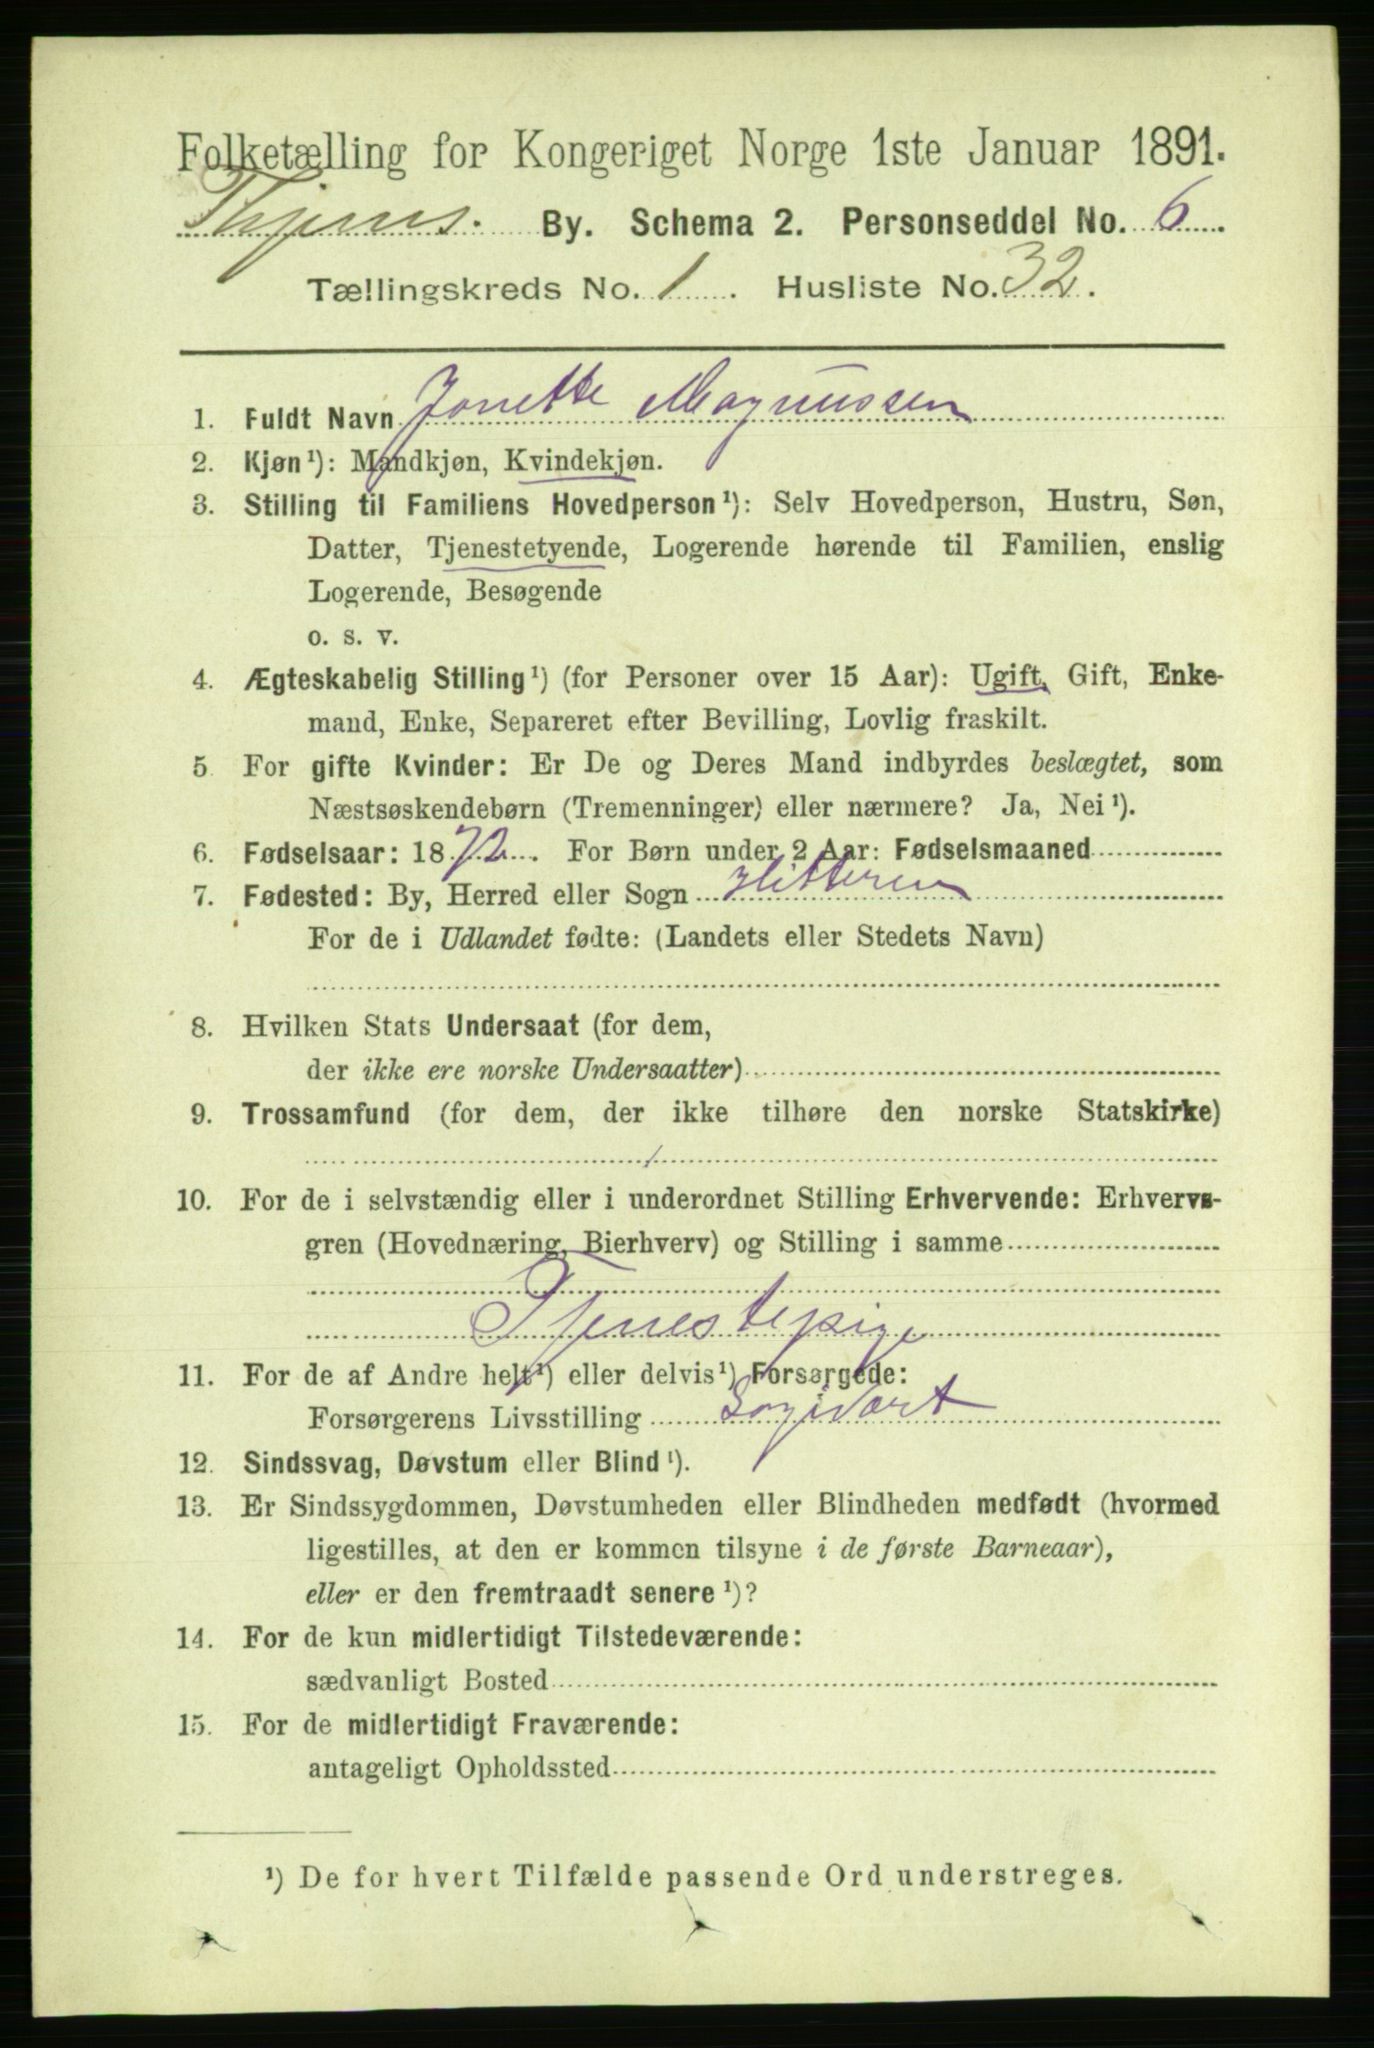 Folketælling for Kongeriget Norge 1ste Januar 1891.
Thjems. By. Schema 2. Personseddel No. 6
Tællingskreds No. 1. Husliste No. 32.
1. Fuldt Navn Jonette Magnussen
2. Kjøn¹): Mandkjøn, Kvindekjøn.
3. Stilling til Familiens Hovedperson¹): Selv Hovedperson, Hustru, Søn,
Datter, Tjenestetyende, Logerende hørende til Familien, enslig
Logerende, Besøgende
o. s. v.
4. Ægteskabelig Stilling¹) (for Personer over 15 Aar): Ugift, Gift, Enke-
mand, Enke, Separeret efter Bevilling, Lovlig fraskilt.
5. For gifte Kvinder: Er De og Deres Mand indbyrdes beslægtet, som
Næstsøskendebørn (Tremenninger) eller nærmere? Ja, Nei¹).
6. Fødselsaar: 1872. For Børn under 2 Aar: Fødselsmaaned
7. Fødested: By, Herred eller Sogn Hitteren
For de i Udlandet fødte: (Landets eller Stedets Navn)
8. Hvilken Stats Undersaat (for dem,
der ikke ere norske Undersaatter)
9. Trossamfund (for dem, der ikke tilhøre den norske Statskirke)
10. For de i selvstændig eller i underordnet Stilling Erhvervende: Erhvervs-
gren (Hovednæring, Bierhverv) og Stilling i samme
Tjenestepige
11. For de af Andre helt¹) eller delvis¹) Forsørgede:
Forsørgerens Livsstilling
12. Sindssvag, Døvstum eller Blind¹).
13. Er Sindssygdommen, Døvstumheden eller Blindheden medfødt (hvormed
ligestilles, at den er kommen tilsyne i de første Barneaar),
eller er den fremtraadt senere¹)?
14. For de kun midlertidigt Tilstedeværende:
sædvanligt Bosted
15. For de midlertidigt Fraværende:
antageligt Opholdssted
¹) De for hvert Tilfælde passende Ord understreges.